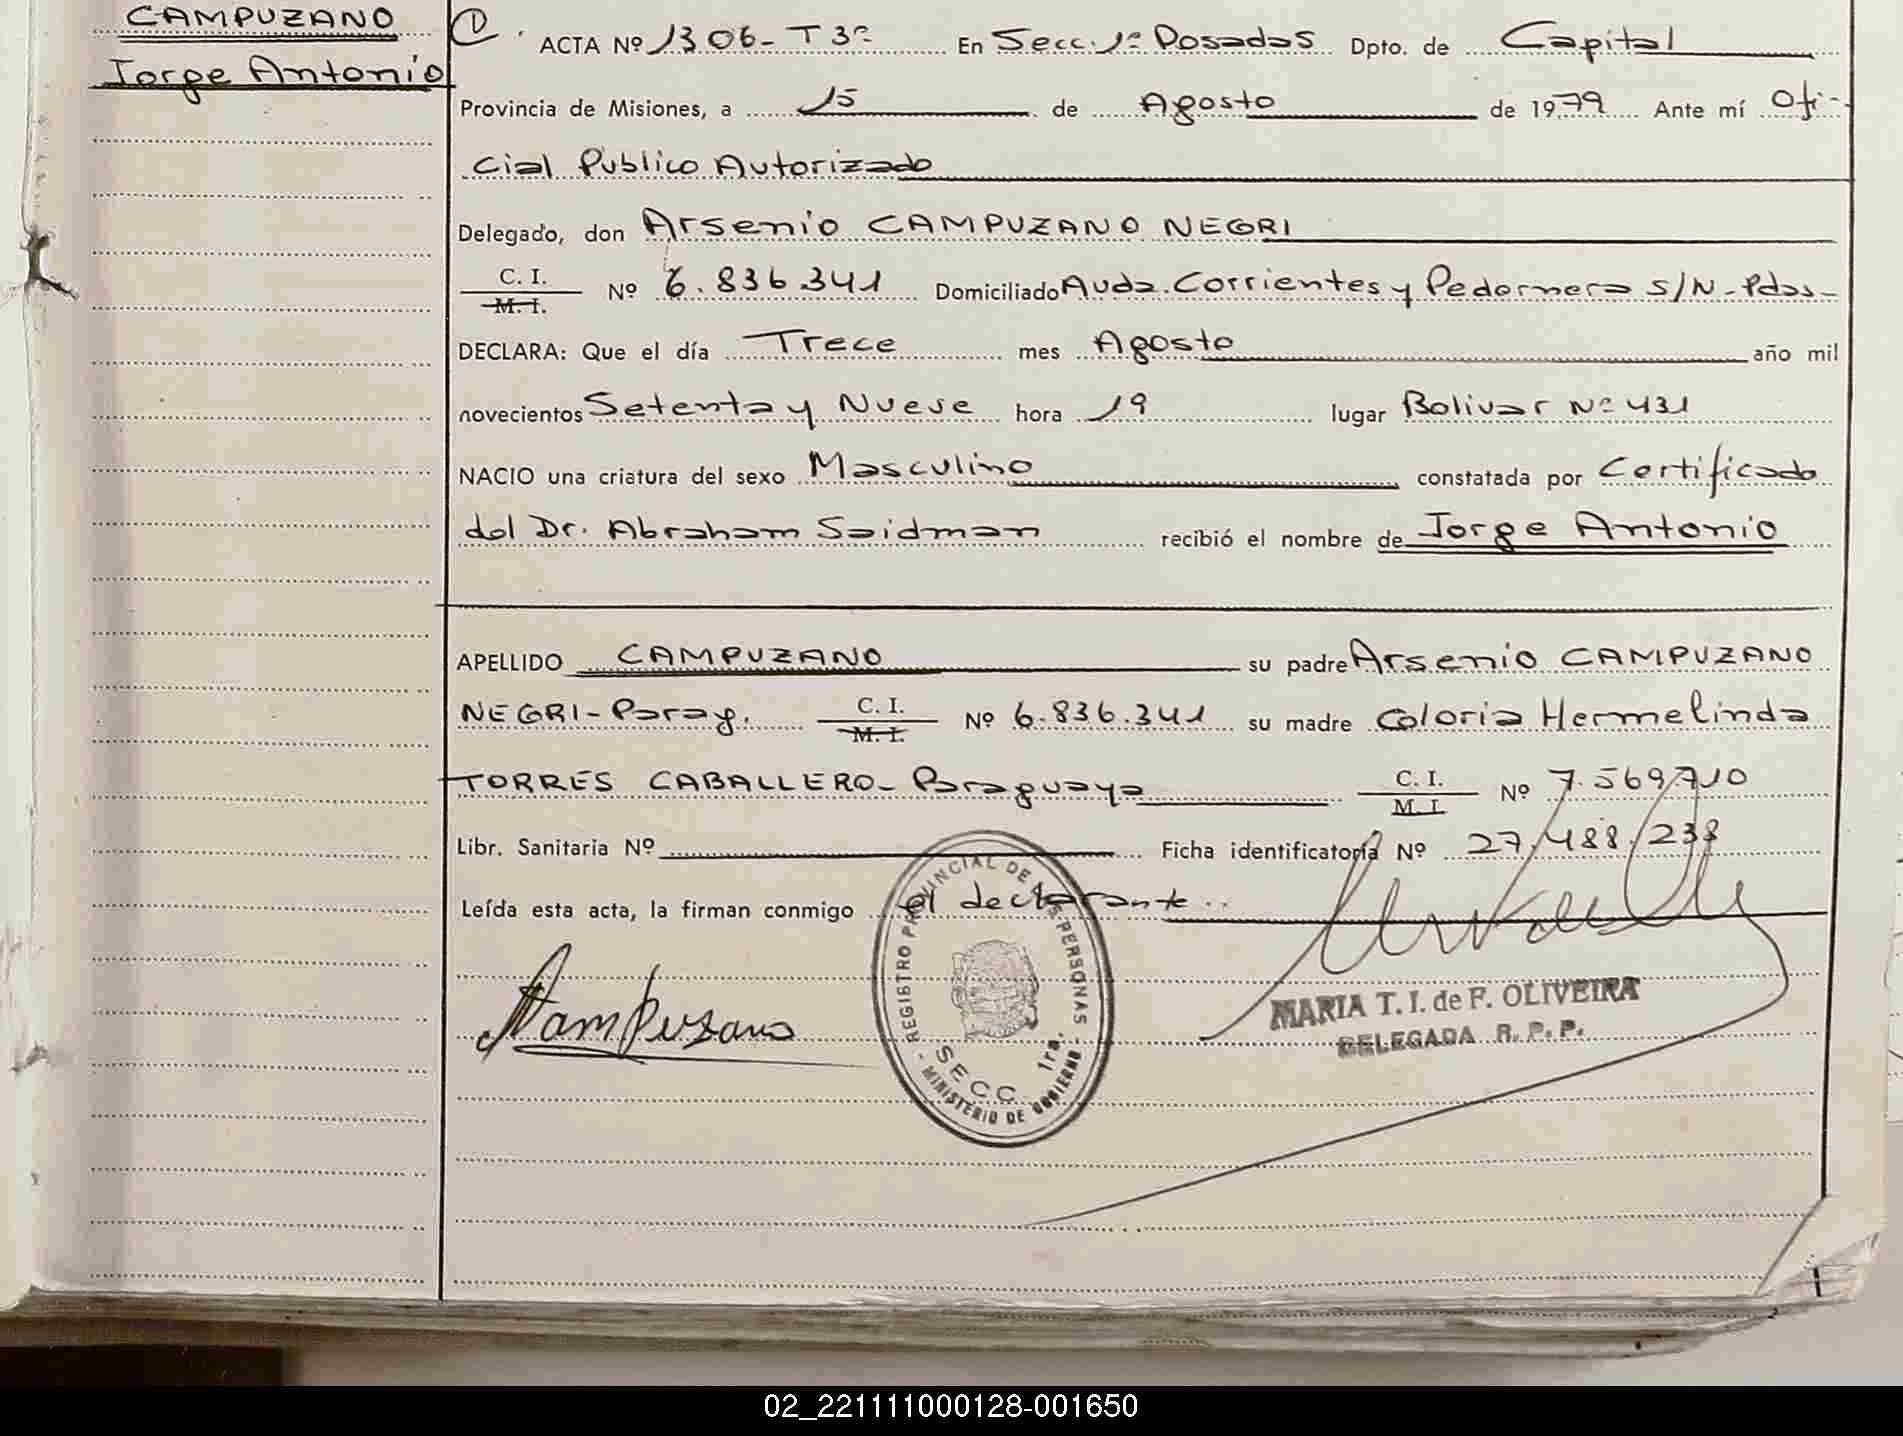 CAMPUZANO
Jorge Antonio
1
ACTA Nº 1306- T3º En Secc. 1º Posadas Dpto. de Capital
Provincia de Misiones, a 15 de Agosto de 1979 Ante mí Ofi-
cial Publico Autorizado
Delegado, don Arsenio CAMPUZANO NEGRI
C. I.
M. I. Nº 6.836.341 Domiciliado Avda. Corrientes y Pedernera S/N-Pdas-
DECLARA: Que el día Trece mes Agosto año mil
novecientos Setenta y Nueve hora 19 lugar Bolivar Nº 431
NACIO una criatura del sexo Masculino constatada por Certificado
del Dr. Abraham Saidman recibió el nombre de Jorge Antonio
APELLIDO CAMPUZANO su padre Arsenio CAMPUZANO
NEGRI-Parag. C. I.
M. I. Nº 6.836.341 su madre Coloria Hermelinda
TORRES CABALLERO- Paraguaya C. I.
M. I. Nº 7.569.710
Libr. Sanitaria Nº Ficha identificatoria Nº 27.488.238
Leída esta acta, la firman conmigo el declarante..
Campuzano
REGISTRO PROVINCIAL DE LAS PERSONAS
SECC. 1ra.
- MINISTERIO DE GOBIERNO -
MARIA T. I. de F. OLIVEIRA
DELEGADA R. P. P.
02_221111000128-001650